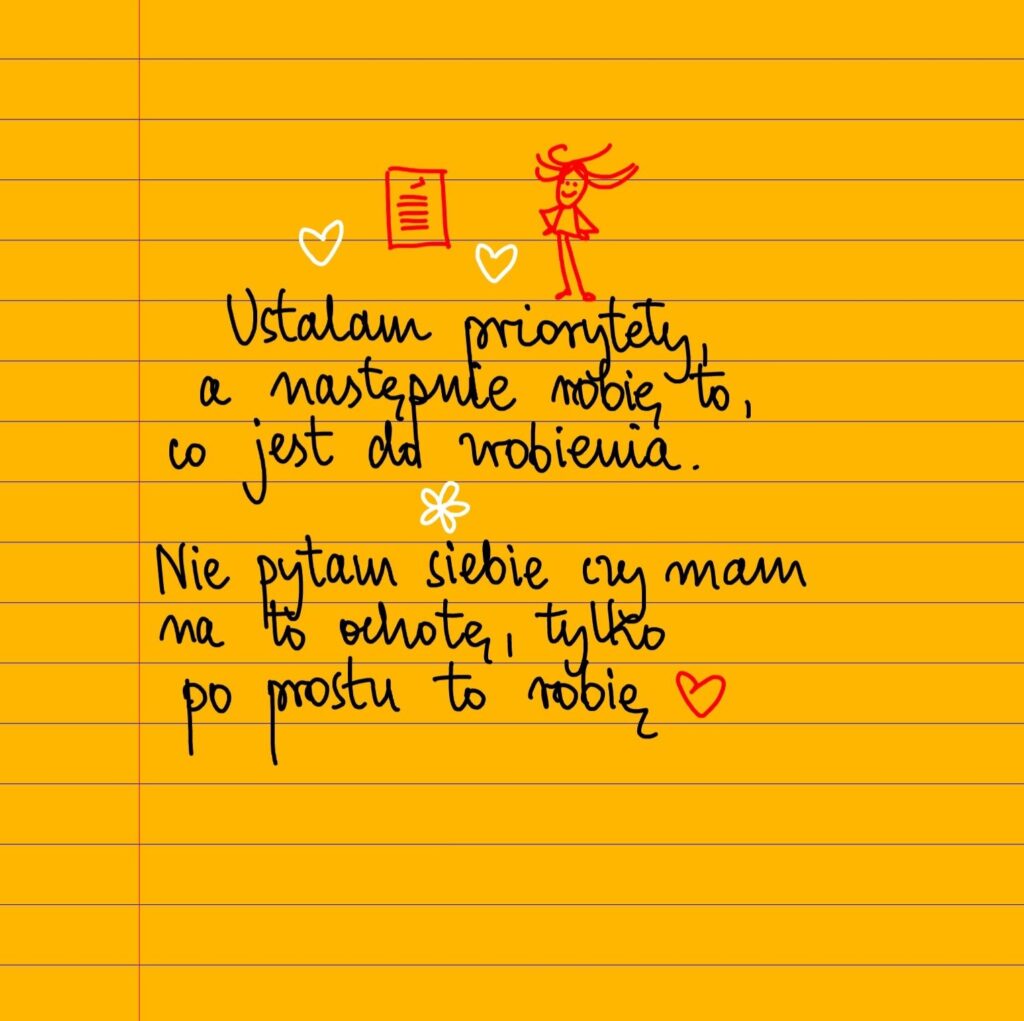 Ustalam priorytety,
a następnie robię to,
co jest do zrobienia.
Nie pytam siebie czy mam
na to ochotę, tylko
po prostu to robię